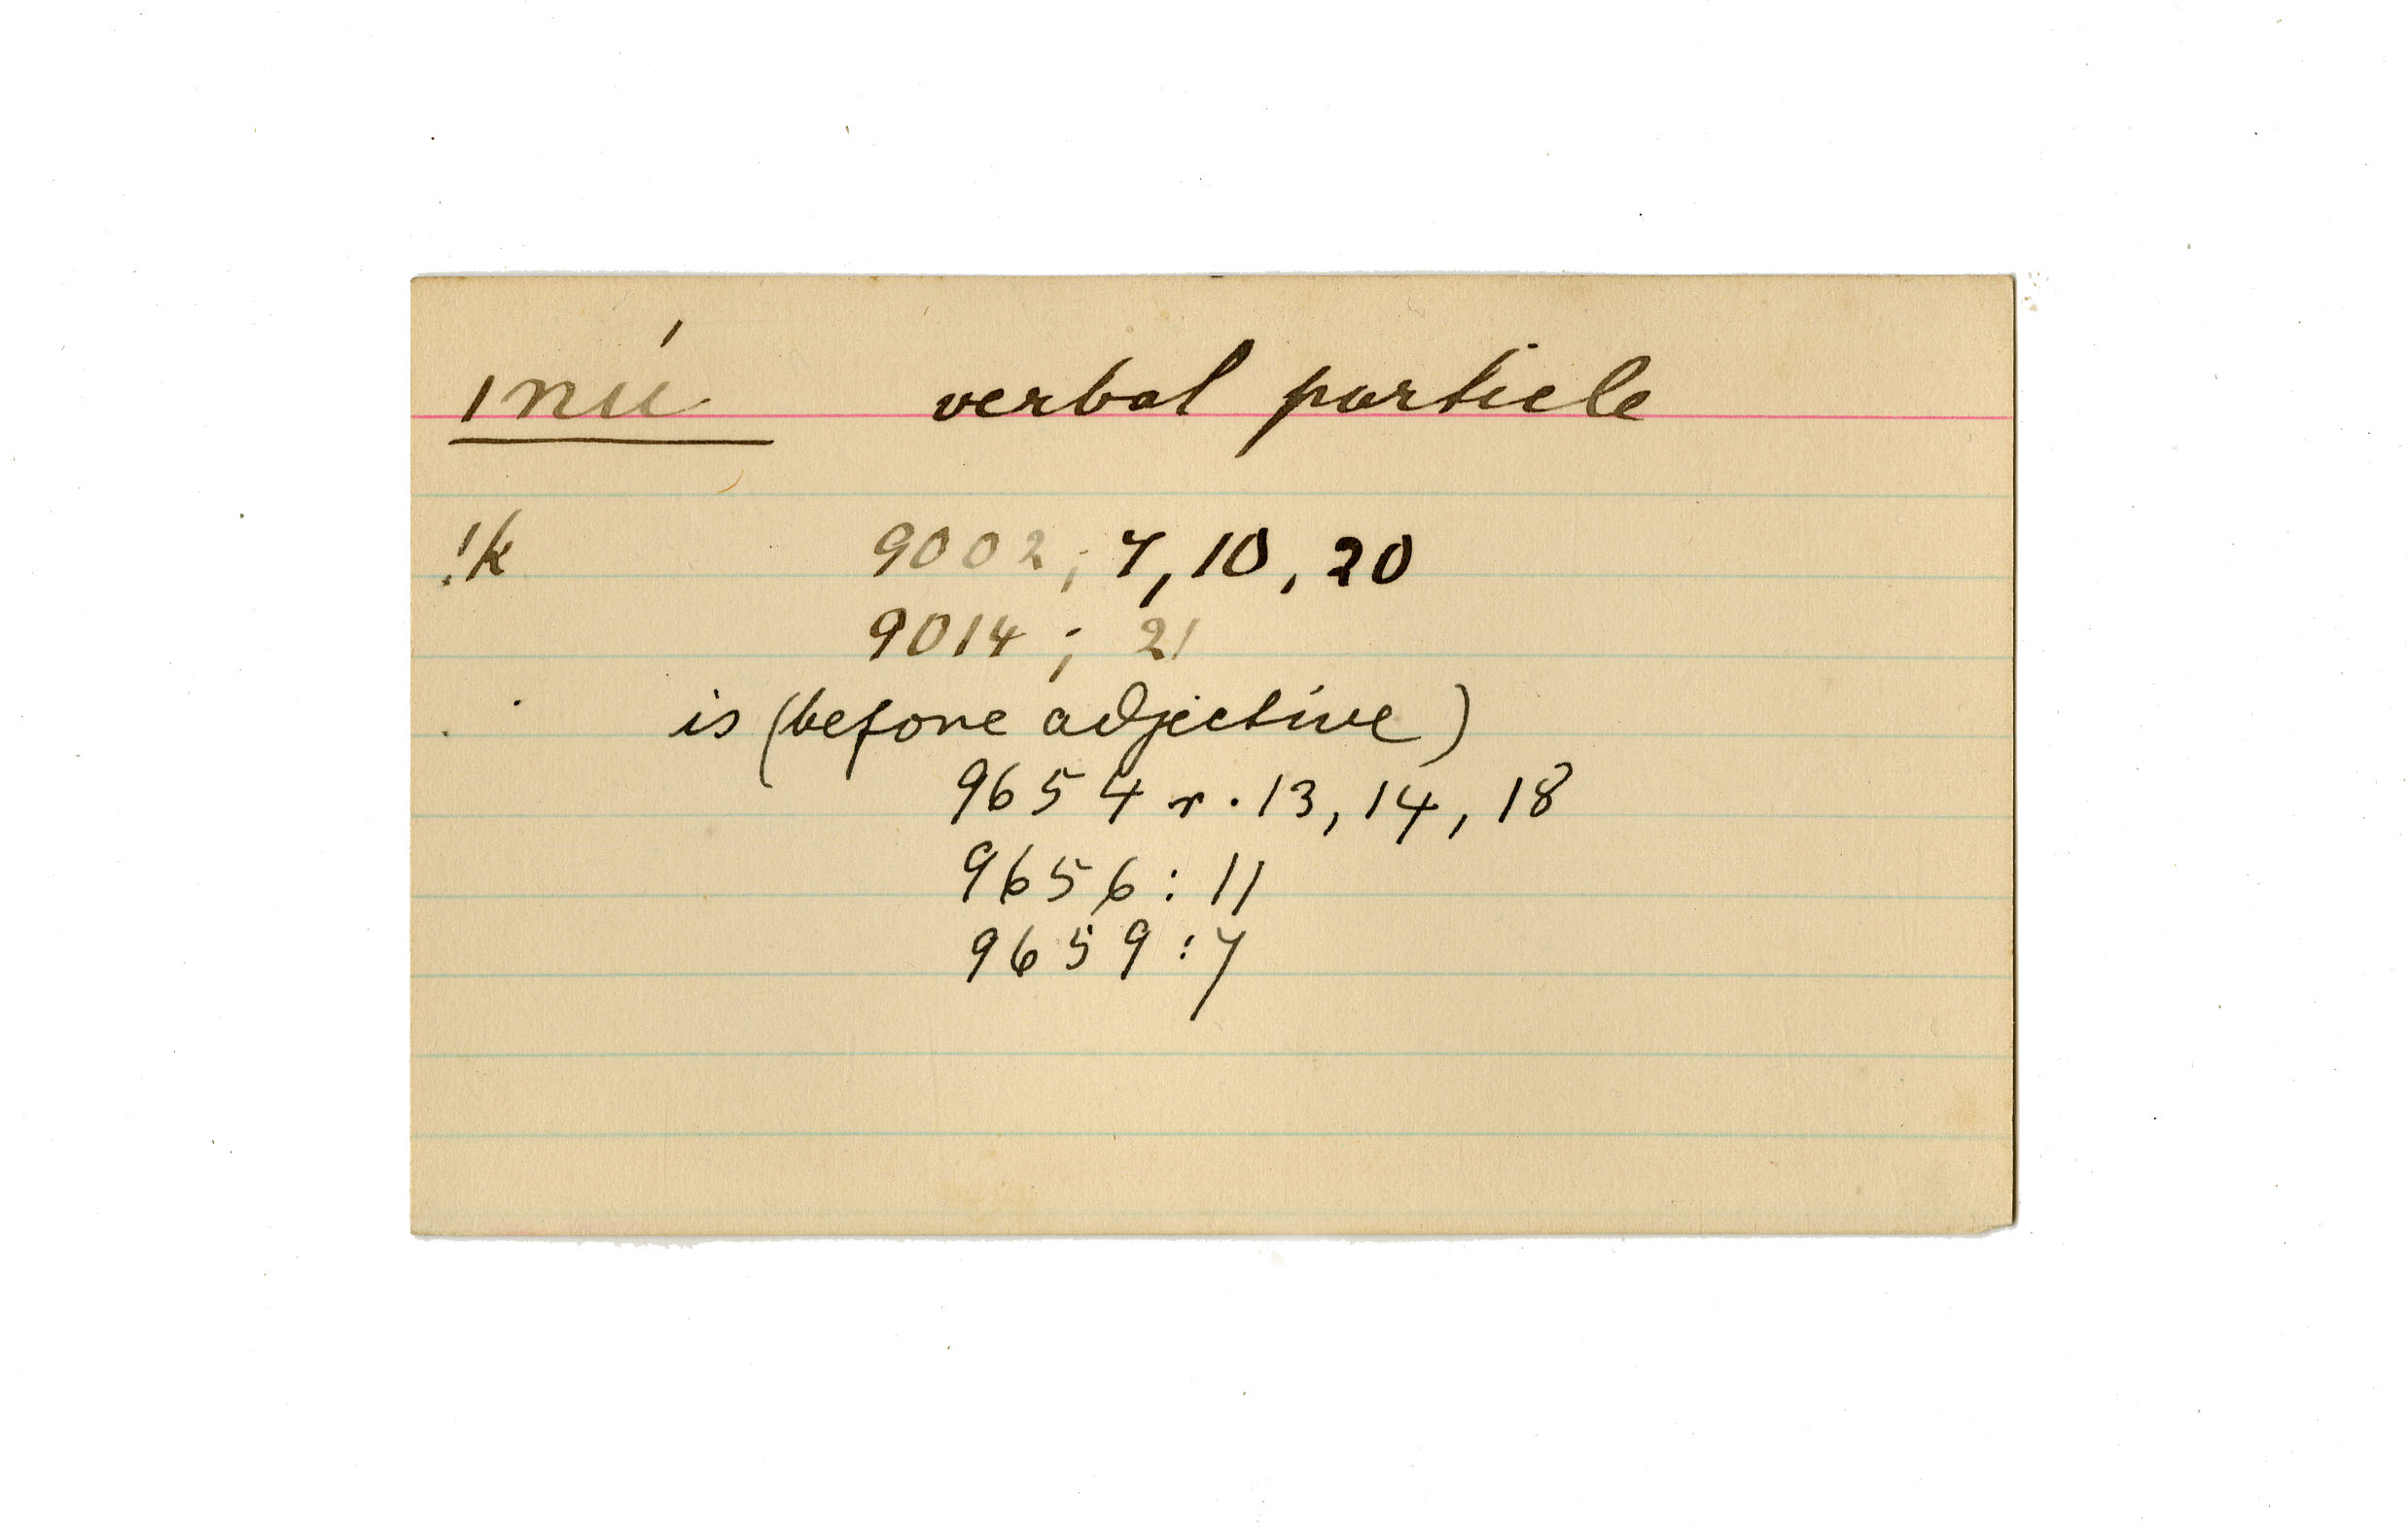 ınú verbal particle
!k 9002; 7, 10, 20
9014; 21
is (before adjective)
9654 r. 13, 14, 18
9656: 11
9659: 7